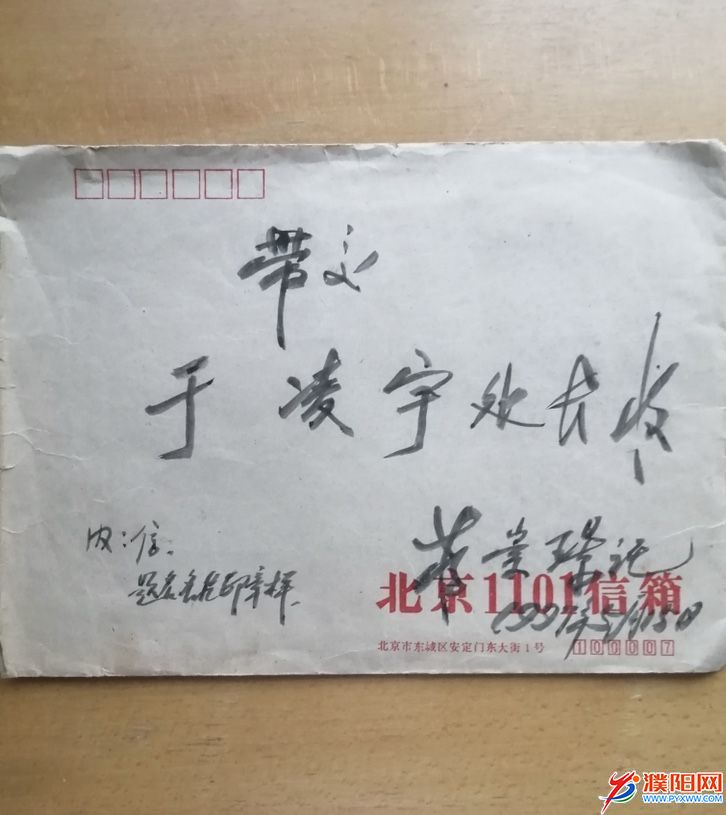 带交
于凌宇处长收
内：信、
题名
印章样
黄
崇
托
北京1101信箱
1997年5月13日
北京市东城区安定门东大街1号 100007
濮阳网
WWW.PYXWW.COM